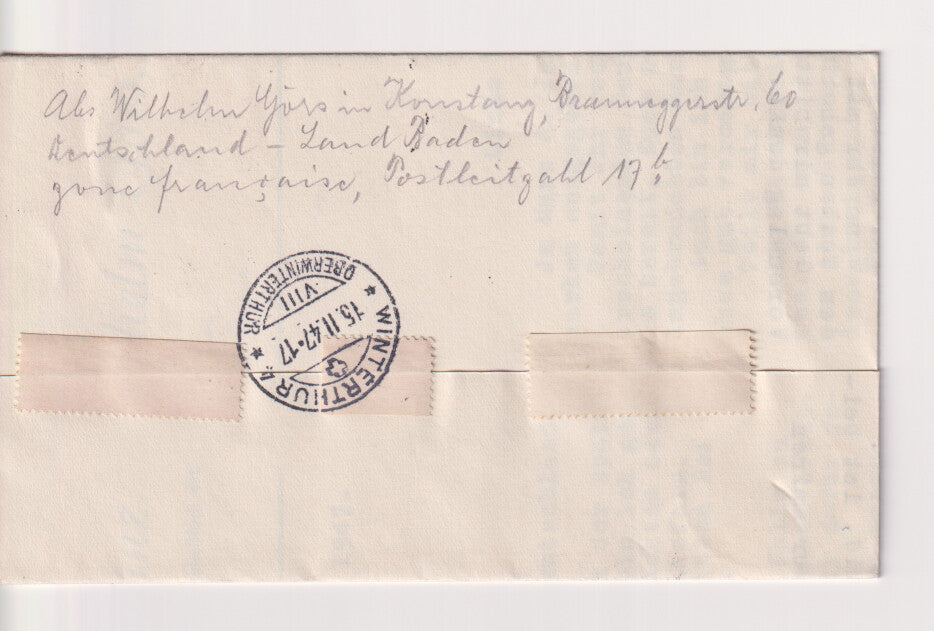 Abs Wilhelm Görs in Konstanz, Brauneggerstr. 60
Deutschland – Land Baden
zone française, Postleitzahl 17b
WINTERTHUR 4
15.II.47-17
VIII
OBERWINTERTHUR